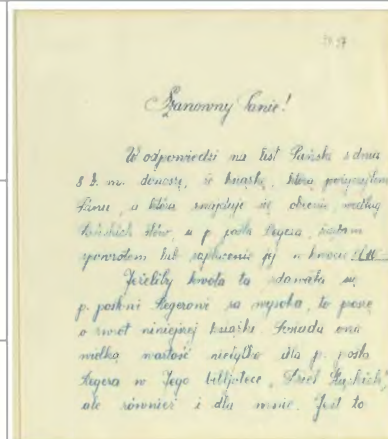 Szanowny Panie!
W odpowiedzi na list Pański z dnia
8 b. m. donoszę, że książkę, którą pożyczyłem
Panu, a która znajduje się obecnie według
Pańskich słów u p. posła Regera, żądam
zpowrotem lub zapłacenia jej w kwocie
Jeżeliby kwota ta zdawała się
p. posłowi Regerowi za wysoka, to proszę
o zwrot niniejszej książki. Posiada ona
wielką wartość nietylko dla p. posła
Regera w Jego bibljotece „Dzieł Śląskich”,
ale również i dla mnie. Jest to